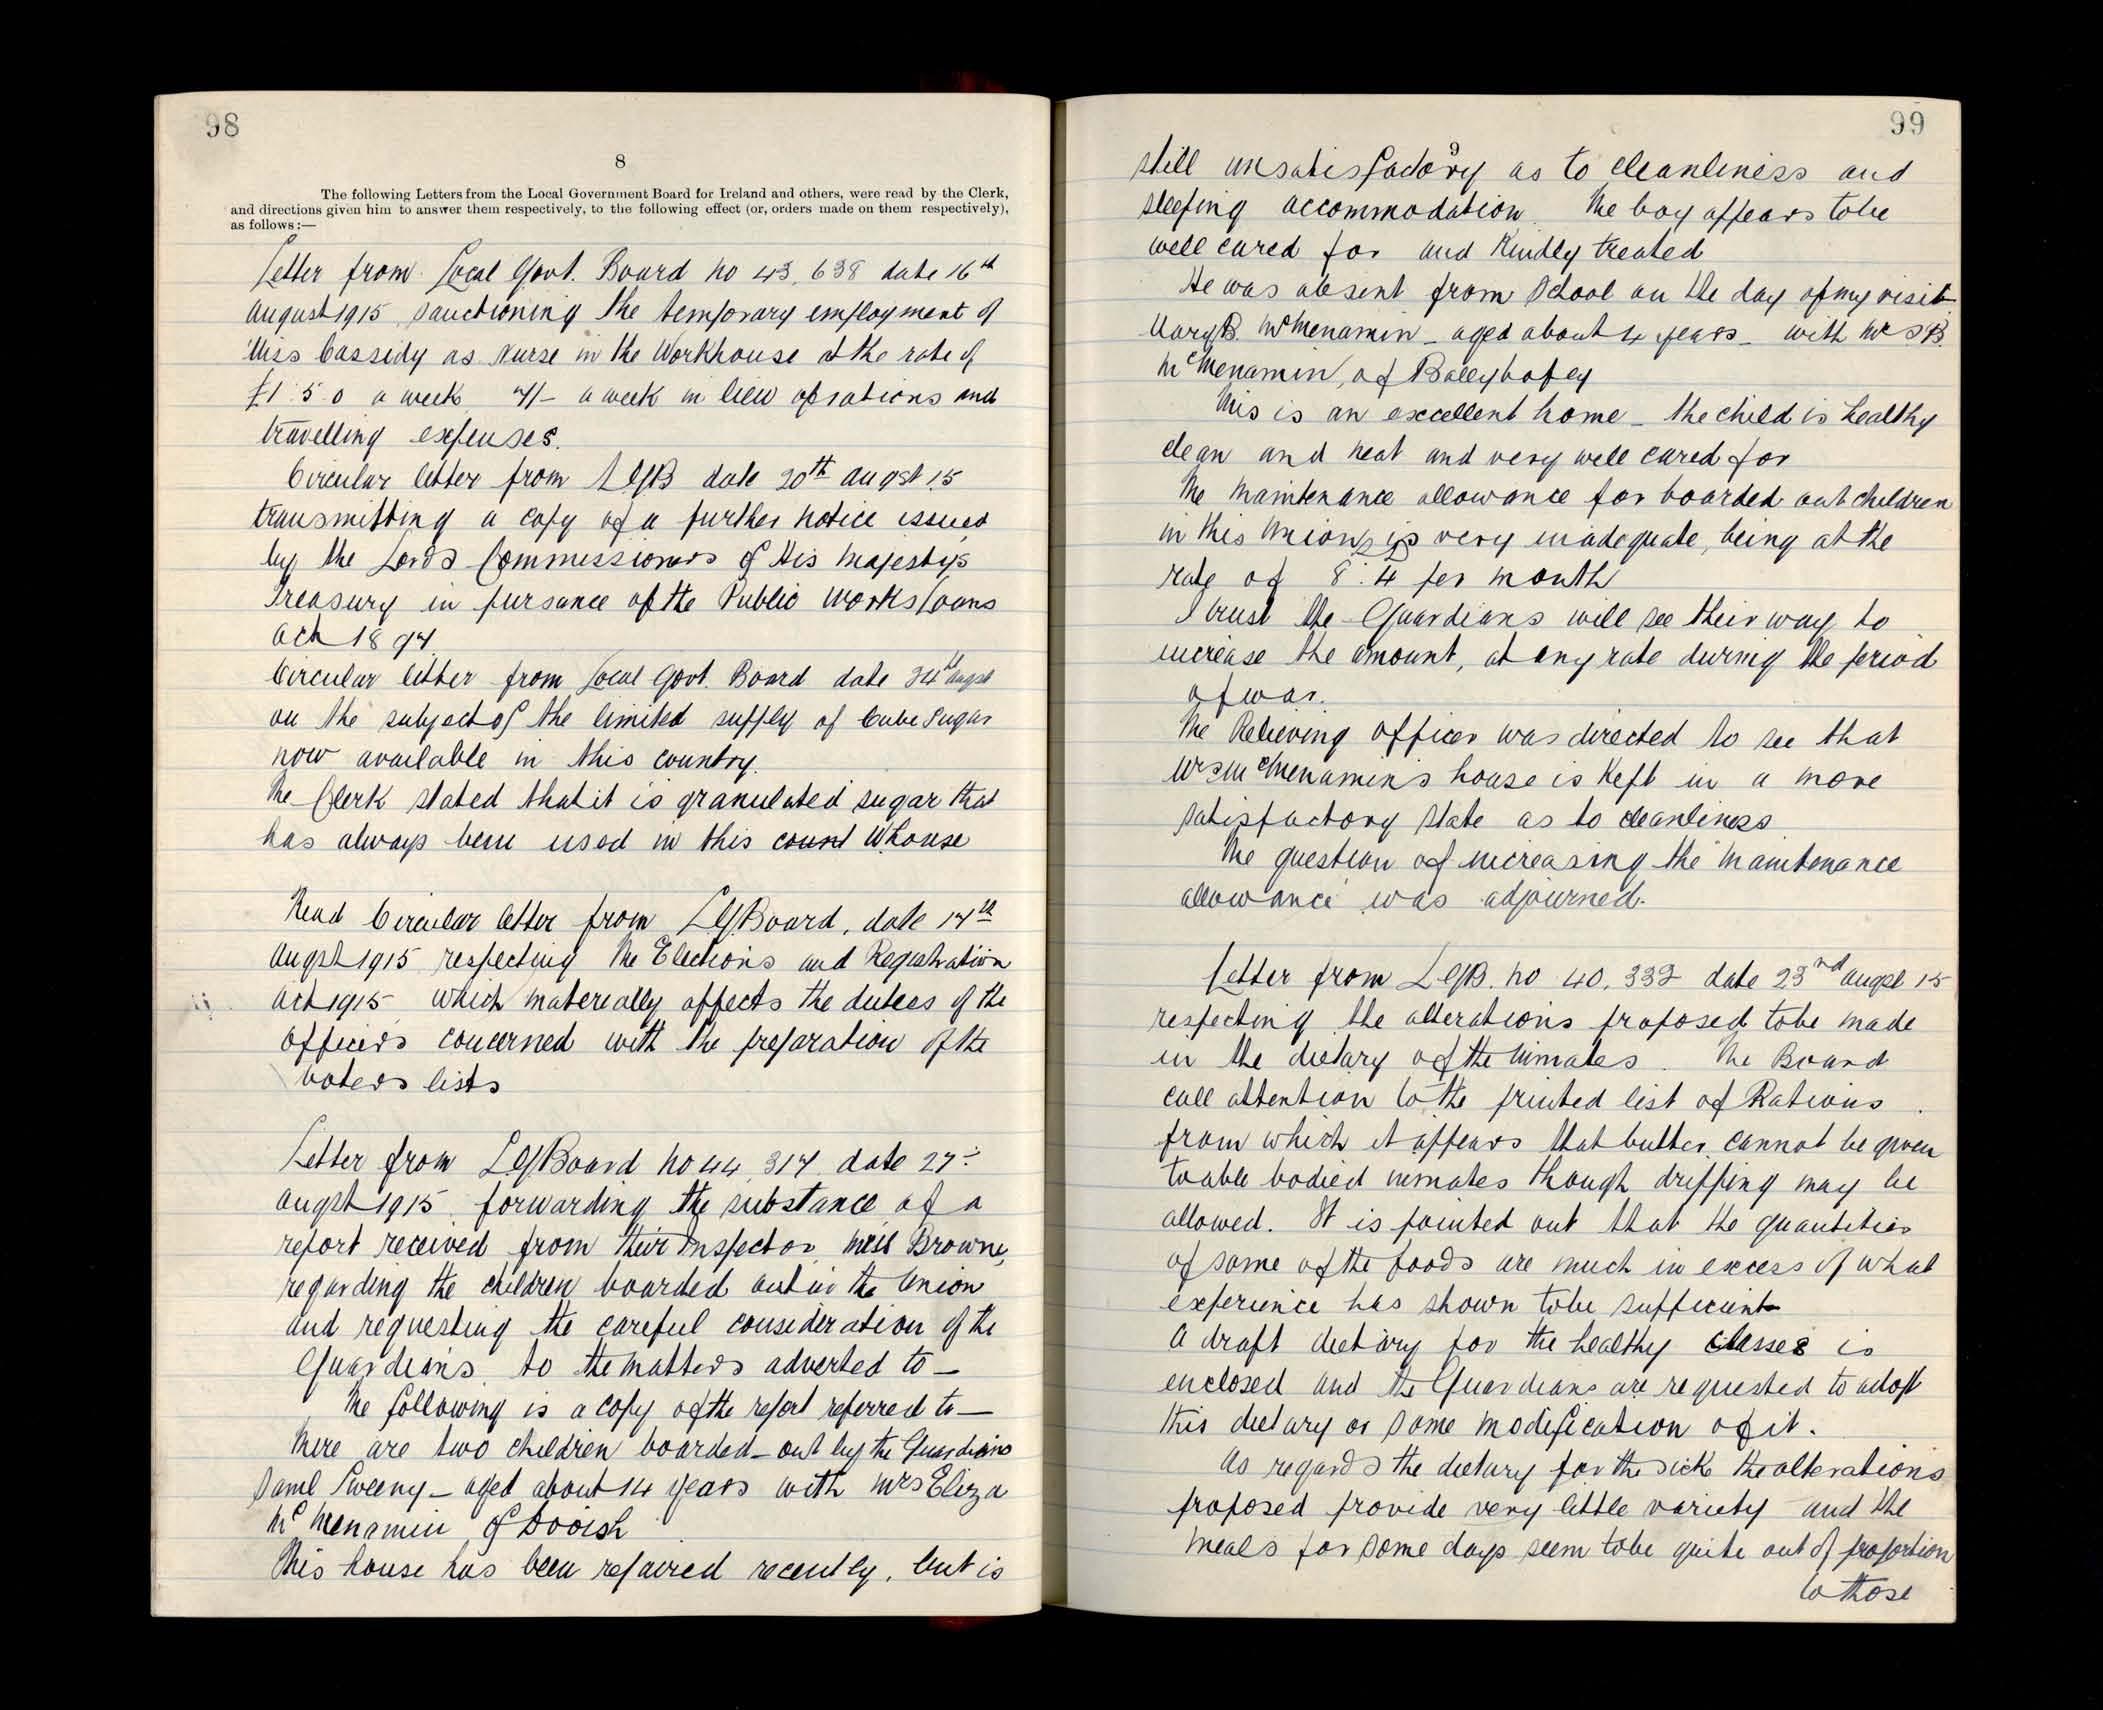 98
8
The following Letters from the Local Government Board for Ireland and others, were read by the Clerk,
and directions given him to answer them respectively, to the following effect (or, orders made on them respectively),
as follows:—
Letter from Local Govt. Board no 43,638 date 16th
August 1915 sanctioning the temporary employment of
Miss Cassidy as Nurse in the Workhouse at the rate of
£1.5.0 a week 7/- a week in lieu of rations and
travelling expenses.
Circular letter from LGB date 20th Augst 15
transmitting a copy of a further notice issued
by the Lords Commissioners of His Majestys
Treasury in pursance of the Public Works Loans
Act 1897
Circular letter from Local Govt. Board date 24th Augst
on the subject of the limited supply of Cube Sugar
now available in this country.
The Clerk stated that it is granulated sugar that
has always been used in this count Whouse
Read Circular letter from LGBoard, date 17th
Augst 1915 respecting The Elections and Registration
Act 1915 which matereally affects the duties of the
officers concerned with the preparation of the
voters lists
Letter from LGBoard no 44,317 date 27th
Augst 1915 forwarding the substance of a
report received from their Inspector Miss Browne,
regarding the children boarded out in the Union
and requesting the careful consideration of the
Guardians to the matters adverted to —
The following is a copy of the report referred to —
There are two children boarded-out by the Guardians
Saml Sweeny — aged about 14 years with Mrs Eliza
McMenamin of Dooish
This house has been repaired recently, but is
99
9
still unsatisfactory as to cleanliness and
sleeping accommodation. The boy appears to be
well cared for and kindly treated
He was absent from School on the day of my visit
Mary B. McMenamin — aged about 4 years — with Mrs B.
McMenamin, of Ballybofey
This is an excellent home — the child is healthy
clean and neat and very well cared for
The maintenance allowance for boarded out children
in this Union is very inadequate, being at the
rate of 8:4 per month
I trust the Guardians will see their way to
increase the amount, at any rate during the period
of war.
The Relieving officer was directed to see that
Mrs McMenamin's house is kept in a more
satisfactory state as to cleanliness
The question of increasing the maintenance
allowance was adjourned.
Letter from LGB. no 40,332 date 23nd Augst 15
respecting the alterations proposed to be made
in the dietary of the Inmates. The Board
call attention to the printed list of Rations
from which it appears that butter cannot be given
to able bodied inmates though dripping may be
allowed. It is pointed out that the quantities
of some of the foods are much in excess of what
experience has shown to be sufficient
A draft dietary for the healthy classes is
enclosed and the Guardians are requested to adopt
this dietary or some modification of it.
As regards the dietary for the sick the alterations
proposed provide very little variety and the
meals for some days seem to be quite out of proportion
to those